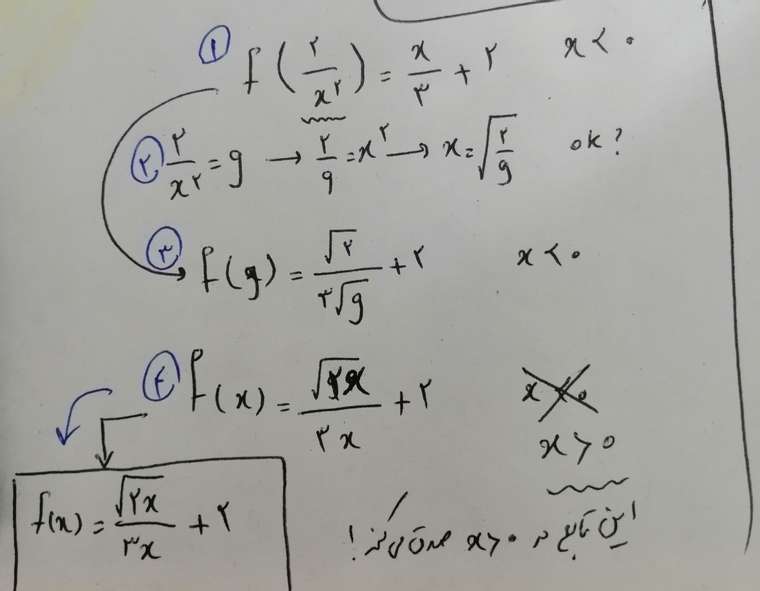 ۱ f(۲/x^۲) = x/۳ + ۲ x < ۰
۲ ۲/x^۲ = g → ۲/g = x^۲ → x = √(۲/g) ok?
۳ f(g) = √۲/۳√g + ۲ x < ۰
۴ f(x) = √۲x/۳x + ۲ x < ۰
x > ۰
f(x) = √۲x/۳x + ۲
این تابع در x > ۰ صدق می کند!